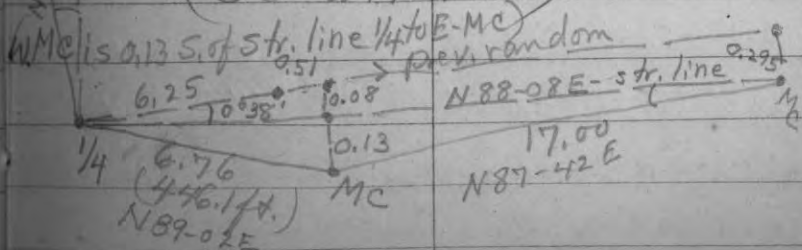 W.MC is 0.13 S. of str. line 1/4 to E-MC
prev. random
0.51
6.25
0.08
0.295
N 88-08 E - str. line
0°38'
1/4
0.13
17.00
MC
6.76
(446.1 ft.)
MC
N 87-42 E
N89-02E